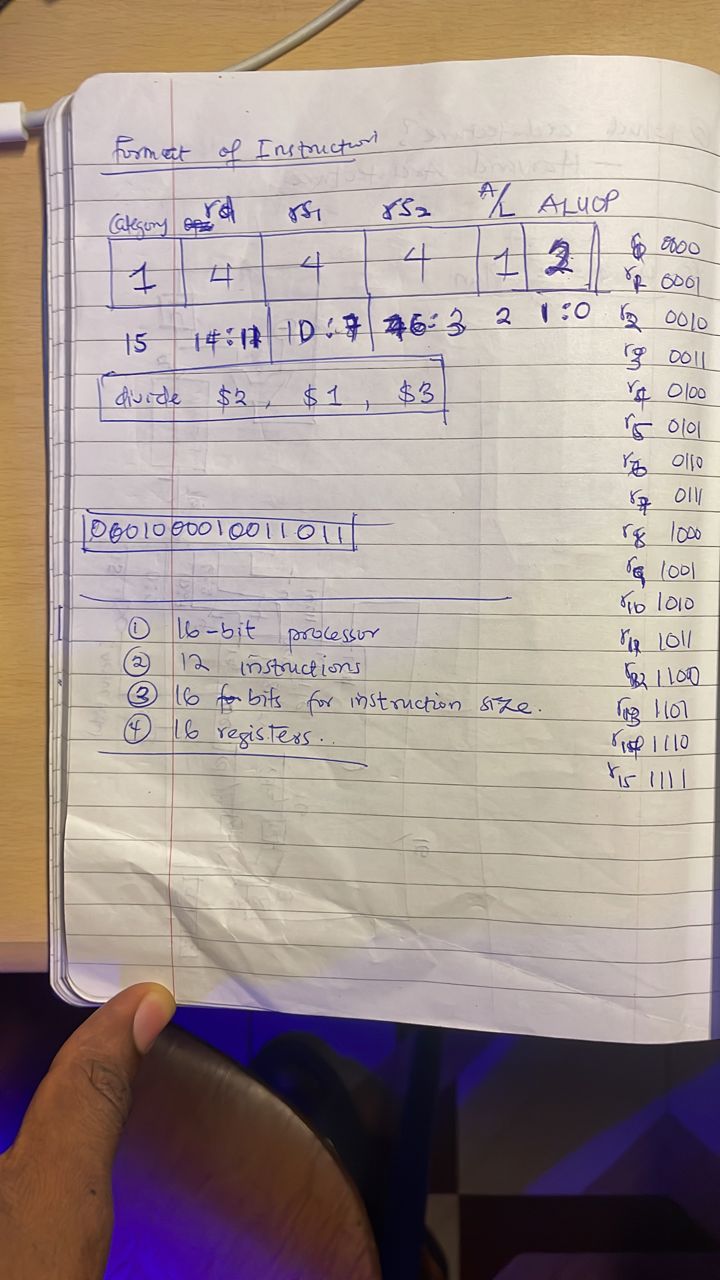 Format of Instruction
Category rd rs1 rs2 A/L ALUOP
1 4 4 4 1 2
15 14:11 10:7 6:3 2 1:0
divide $2, $1, $3
0001000010011011
① 16-bit processor
② 12 instructions
③ 16 bits for instruction size.
④ 16 registers..
0000
r1 0001
r2 0010
r3 0011
r4 0100
r5 0101
r6 0110
r7 0111
r8 1000
r9 1001
r10 1010
r11 1011
r12 1100
r13 1101
r14 1110
r15 1111